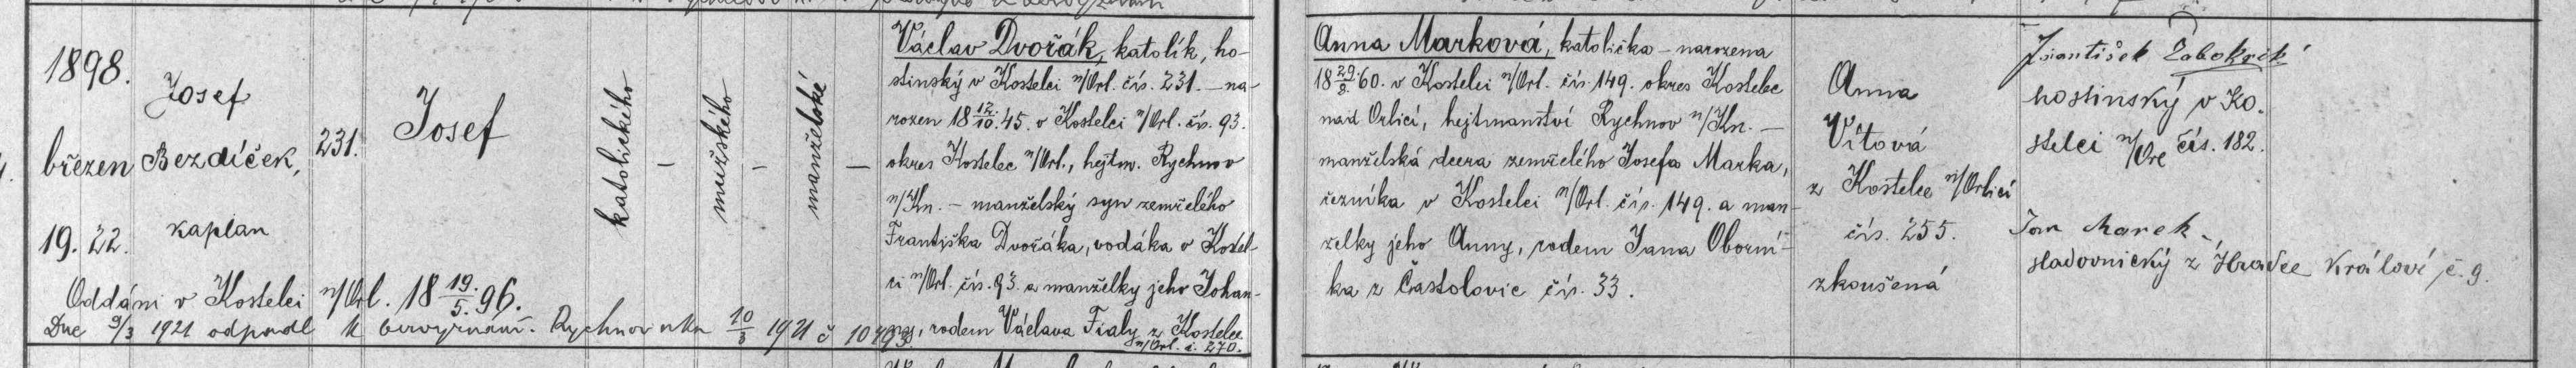 1898.
březen
19. 22.
Josef
Bezdíček,
kaplan
231.
Josef
katolického
—
mužského
—
manželské
—
Oddáni v Kostelci n/Orl. 18 19/5. 96.
Dne 9/3 1921 odpadl k bezvyznání. Rychnov n/Kn 10/3 1921 č
Václav Dvořák, katolík, ho-
stinský v Kostelci n/Orl. čís. 231. — na-
rozen 18 12/10. 45. v Kostelci n/Orl. čís. 93.
okres Kostelec n/Orl., hejtm. Rychnov
n/Kn. — manželský syn zemřelého
Františka Dvořáka, vodáka v Kostel-
ci n/Orl. čís. 93. a manželky jeho Johan-
ny, rodem Václava Fialy z Kostelce
n/Orl. č. 270.
Anna Marková, katolička — narozena
18 29/2. 60. v Kostelci n/Orl. čís. 149. okres Kostelec
nad Orlicí, hejtmanství Rychnov n/Kn. —
manželská dcera zemřelého Josefa Marka,
řezníka v Kostelci n/Orl. čís. 149. a man-
želky jeho Anny, rodem Jana Oborní-
ka z Častolovic čís. 33.
Anna
Vítová
z Kostelce n/Orlicí
čís. 255.
zkoušená
František Zábokrck
hostinský v Ko-
stelci n/Orl čís. 182.
Jan Marek
sladovnický z Hradce Králové, č. 9.